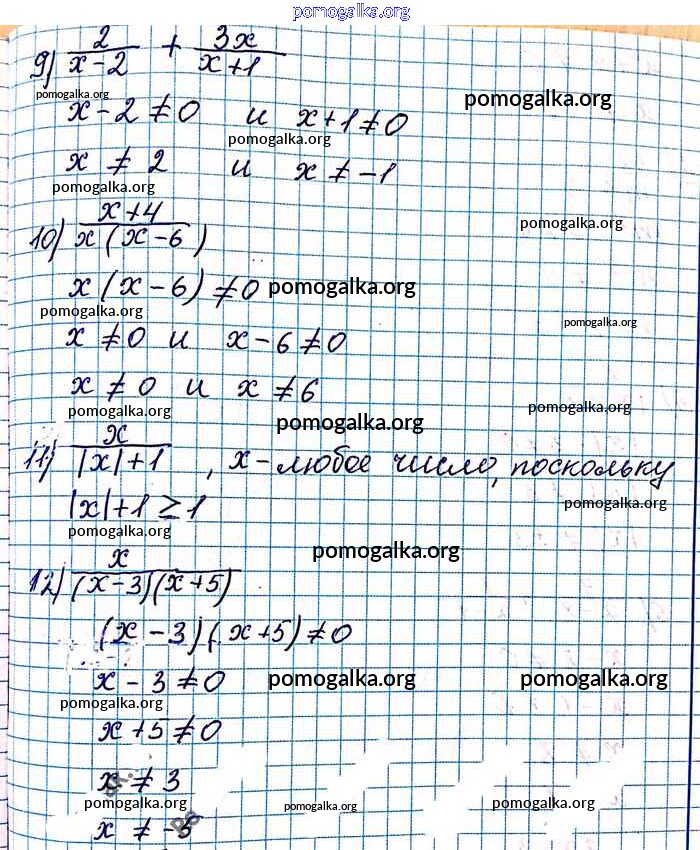 pomogalka.org
9) 2/(x-2) + 3x/(x+1)
pomogalka.org
x-2≠0 и x+1≠0
pomogalka.org
pomogalka.org
x ≠ 2 и x ≠ -1
pomogalka.org
10) (x+4)/(x(x-6))
pomogalka.org
x(x-6)≠0
pomogalka.org
pomogalka.org
pomogalka.org
x ≠0 и x-6≠0
x ≠ 0 и x ≠6
pomogalka.org
pomogalka.org
pomogalka.org
11) x/(|x|+1) , x-любое число, поскольку
|x|+1 ≥ 1
pomogalka.org
pomogalka.org
pomogalka.org
12) x/((x-3)(x+5))
(x-3)(x+5)≠0
x-3≠0
pomogalka.org
pomogalka.org
pomogalka.org
x+5≠0
x ≠ 3
pomogalka.org
pomogalka.org
pomogalka.org
x ≠ -5